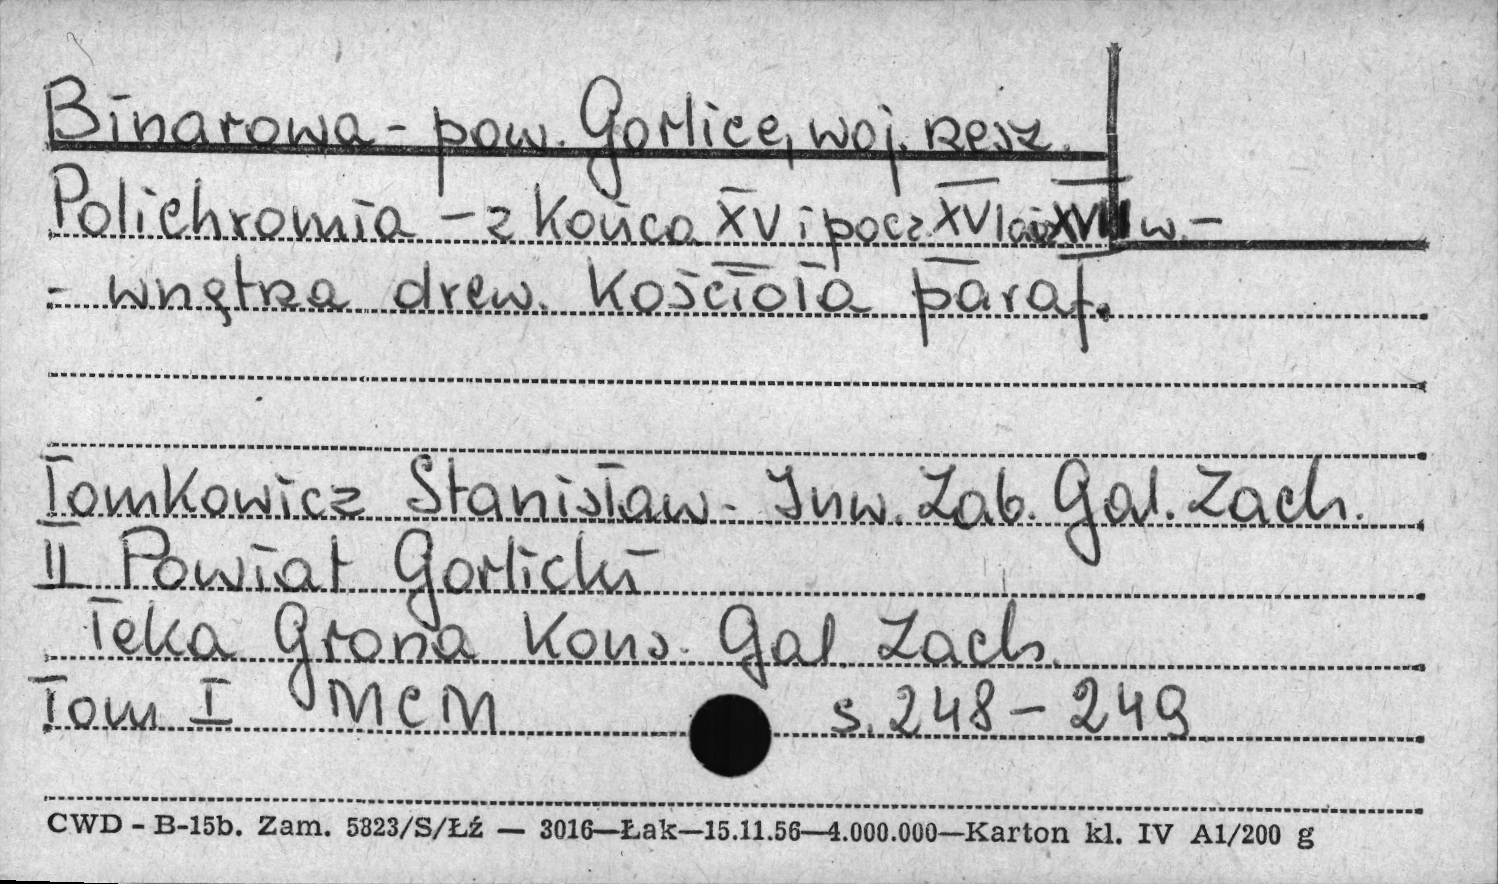 Binarowa - pow. Gorlice, woj. rzesz.
Polichromia - z końca XV i pocz XVI XVII w. -
- wnętrza drew. kościoła paraf.
Tomkowicz Stanisław - Inw. Zab. Gal. Zach.
II Powiat Gorlicki
Teka Grona Kons. Gal. Zach.
Tom I MCM s. 248 - 249
CWD - B-15b. Zam. 5823/S/Łź — 3016—Łak—15.11.56—4.000.000—Karton kl. IV A1/200 g